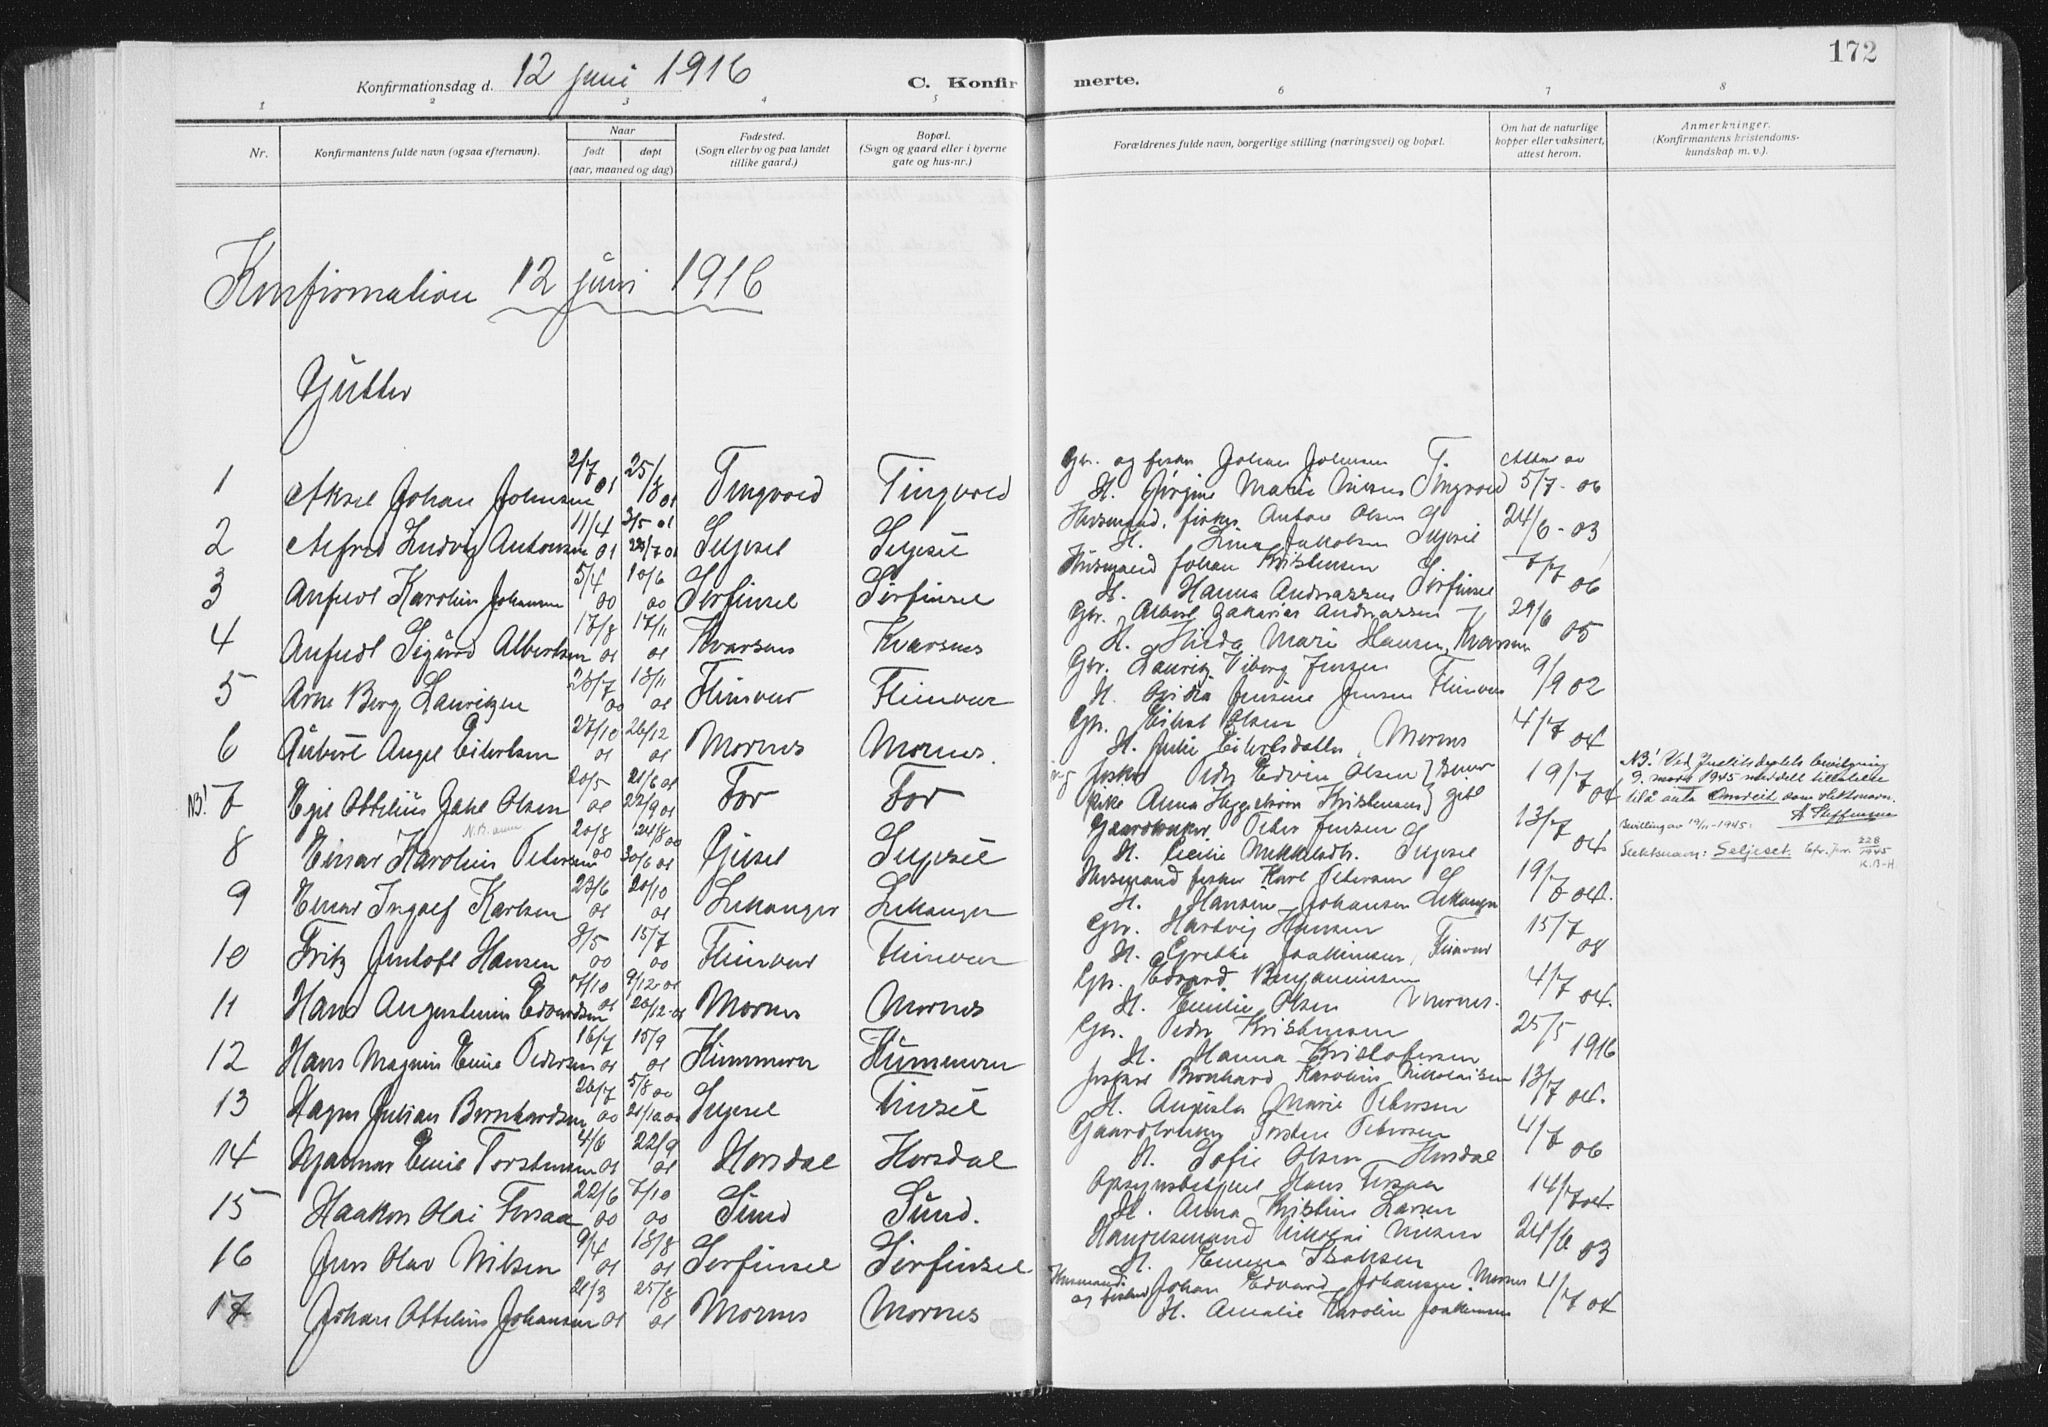 172
Konfirmationsdag d. 12 juni 1916 C. Konfirmerte.
1 2 3 4 5 6 7 8
Nr. Konfirmantens fulde navn (ogsaa efternavn). Naar født døpt (aar, maaned og dag) Fødested. (Sogn eller by og paa landet tillike gaard.) Bopæl. (Sogn og gaard eller i byerne gate og hus-nr.) Forældrenes fulde navn, borgerlige stilling (næringsvei) og bopæl. Om hat de naturlige kopper eller vaksinert, attest herom. Anmerkninger. (Konfirmantens kristendomskundskap m. v.).
Konfirmation 12 juni 1916
Gutter
1 Aksel Johan Johnsen 2/7 01 25/8 01 Tingvold Tingvold Gbr. og fisker Johan Johnsen
H. Jørgine Marie Nilsen Tingvold 5/7-06
2 Alfred Ludvig Antonsen 11/4 01 3/5 01 Seljeset Seljeset Husmand, fisker Anton Olsen Seljeset 24/6-03
H. Lina Jakobsen
3 Anfred Karolius Johansen 5/4 00 10/6 00 Sørfinset Sørfinset Husmand Johan Kristensen 7/7 06
H. Hanna Andreassen Sørfinset
4 Anfred Sigurd Albertsen 17/8 01 17/11 01 Kvarsnes Kvarsnes Gbr. Albert Zakarias Andreassen 29/6 05
H. Hilda Marie Hansen, Kvarsnes
5 Arne Berg Lauritzen 23/7 00 13/11 01 Fleinvær Fleinvær Gbr. Lauritz Viborg Jensen 9/9 02
H. Jensine Jensen Fleinvær
6 Aubert Angel Eilertsen 27/10 01 26/12 01 Mornes Mornes. Gbr. Eilert Olsen 4/7 04
H. Julie Eilertsdatter, Mornes
NB! 7 Egil Ottelius Dahl Olsen 20/5 01 21/6 01 22/9 01 For For fisker Peder Edvin Olsen 19/7 04
pike Anna Kristensen
NB! Ved Justitsdeptets bevilgning
9. mars 1945 meddelt tillatelse
til å anta Omreit som slektsnavn.
A Steffensen
8 Einar Karolius Petersen 20/8 00 24/8 00 30/6 01 Gjeset Seljeset Gaardbruker Peter Jensen Seljeset 13/7 04
H. Cecilie Mikkelsdtr. Seljeset
N.B. anm
Bevilling av 19/11-1945:
Slektsnavn: Seljeset. Cfr. Jnr. 228/1945
K.B-H.
9 Einar Ingolf Karlsen 23/6 01 20/10 01 Lekanger Lekanger Husmand fisker Karl Petersen 19/7 04.
H. Hansine Johansen Lekanger
10 Fritz Jentoft Hansen 8/5 00 15/7 00 Fleinvær Fleinvær Gbr. Hartvig Hansen 15/7 08
H. Grethe Joakimsen, Fleinvær
11 Hans Augustinius Edvardsen 7/10 01 9/12-01 20/12-01 Mornes Mornes Gbr. Edvard Benjaminsen 4/7 04.
H. Emilie Olsen Mornes.
12 Hans Magnus Emil Pedersen 16/7 01 15/9 01 Hummeren Hummeren Gbr. Peder Kristensen 25/5 1916
H. Hanna Kristofersen
13 Hagen Julian Bernhardsen 26/7 00 5/8 00 21/10 00 Seljeset Finset fisker Bernhard Karolius Nikolaisen 13/7 04.
H. Augusta Marie Petersen
14 Hjalmar Emil Torstensen 4/6 01 22/9 01 Horsdal Horsdal Gaardbruker Torsten Petersen 4/7 06
H. Sofie Olsen Horsdal
15 Haakon Olai Forsaa 22/6 00 7/10 00 Sund Sund. Opsynsbetjent Hans Forsaa 14/7 04.
H. Anna Kristine Larsen
16 Jens Olav Nilsen 9/4 01 18/8 01 Sørfinset Sørfinset Handelsmand Nikolai Nilsen 24/6 03
H. Emma Isaksen
17 Johan Ottelius Johansen 21/3 01 25/8 01 Mornes Mornes Husmand og fisker Johan Edvard Johansen. Mornes 4/7 04
H. Amalie Karoline Joakimsen